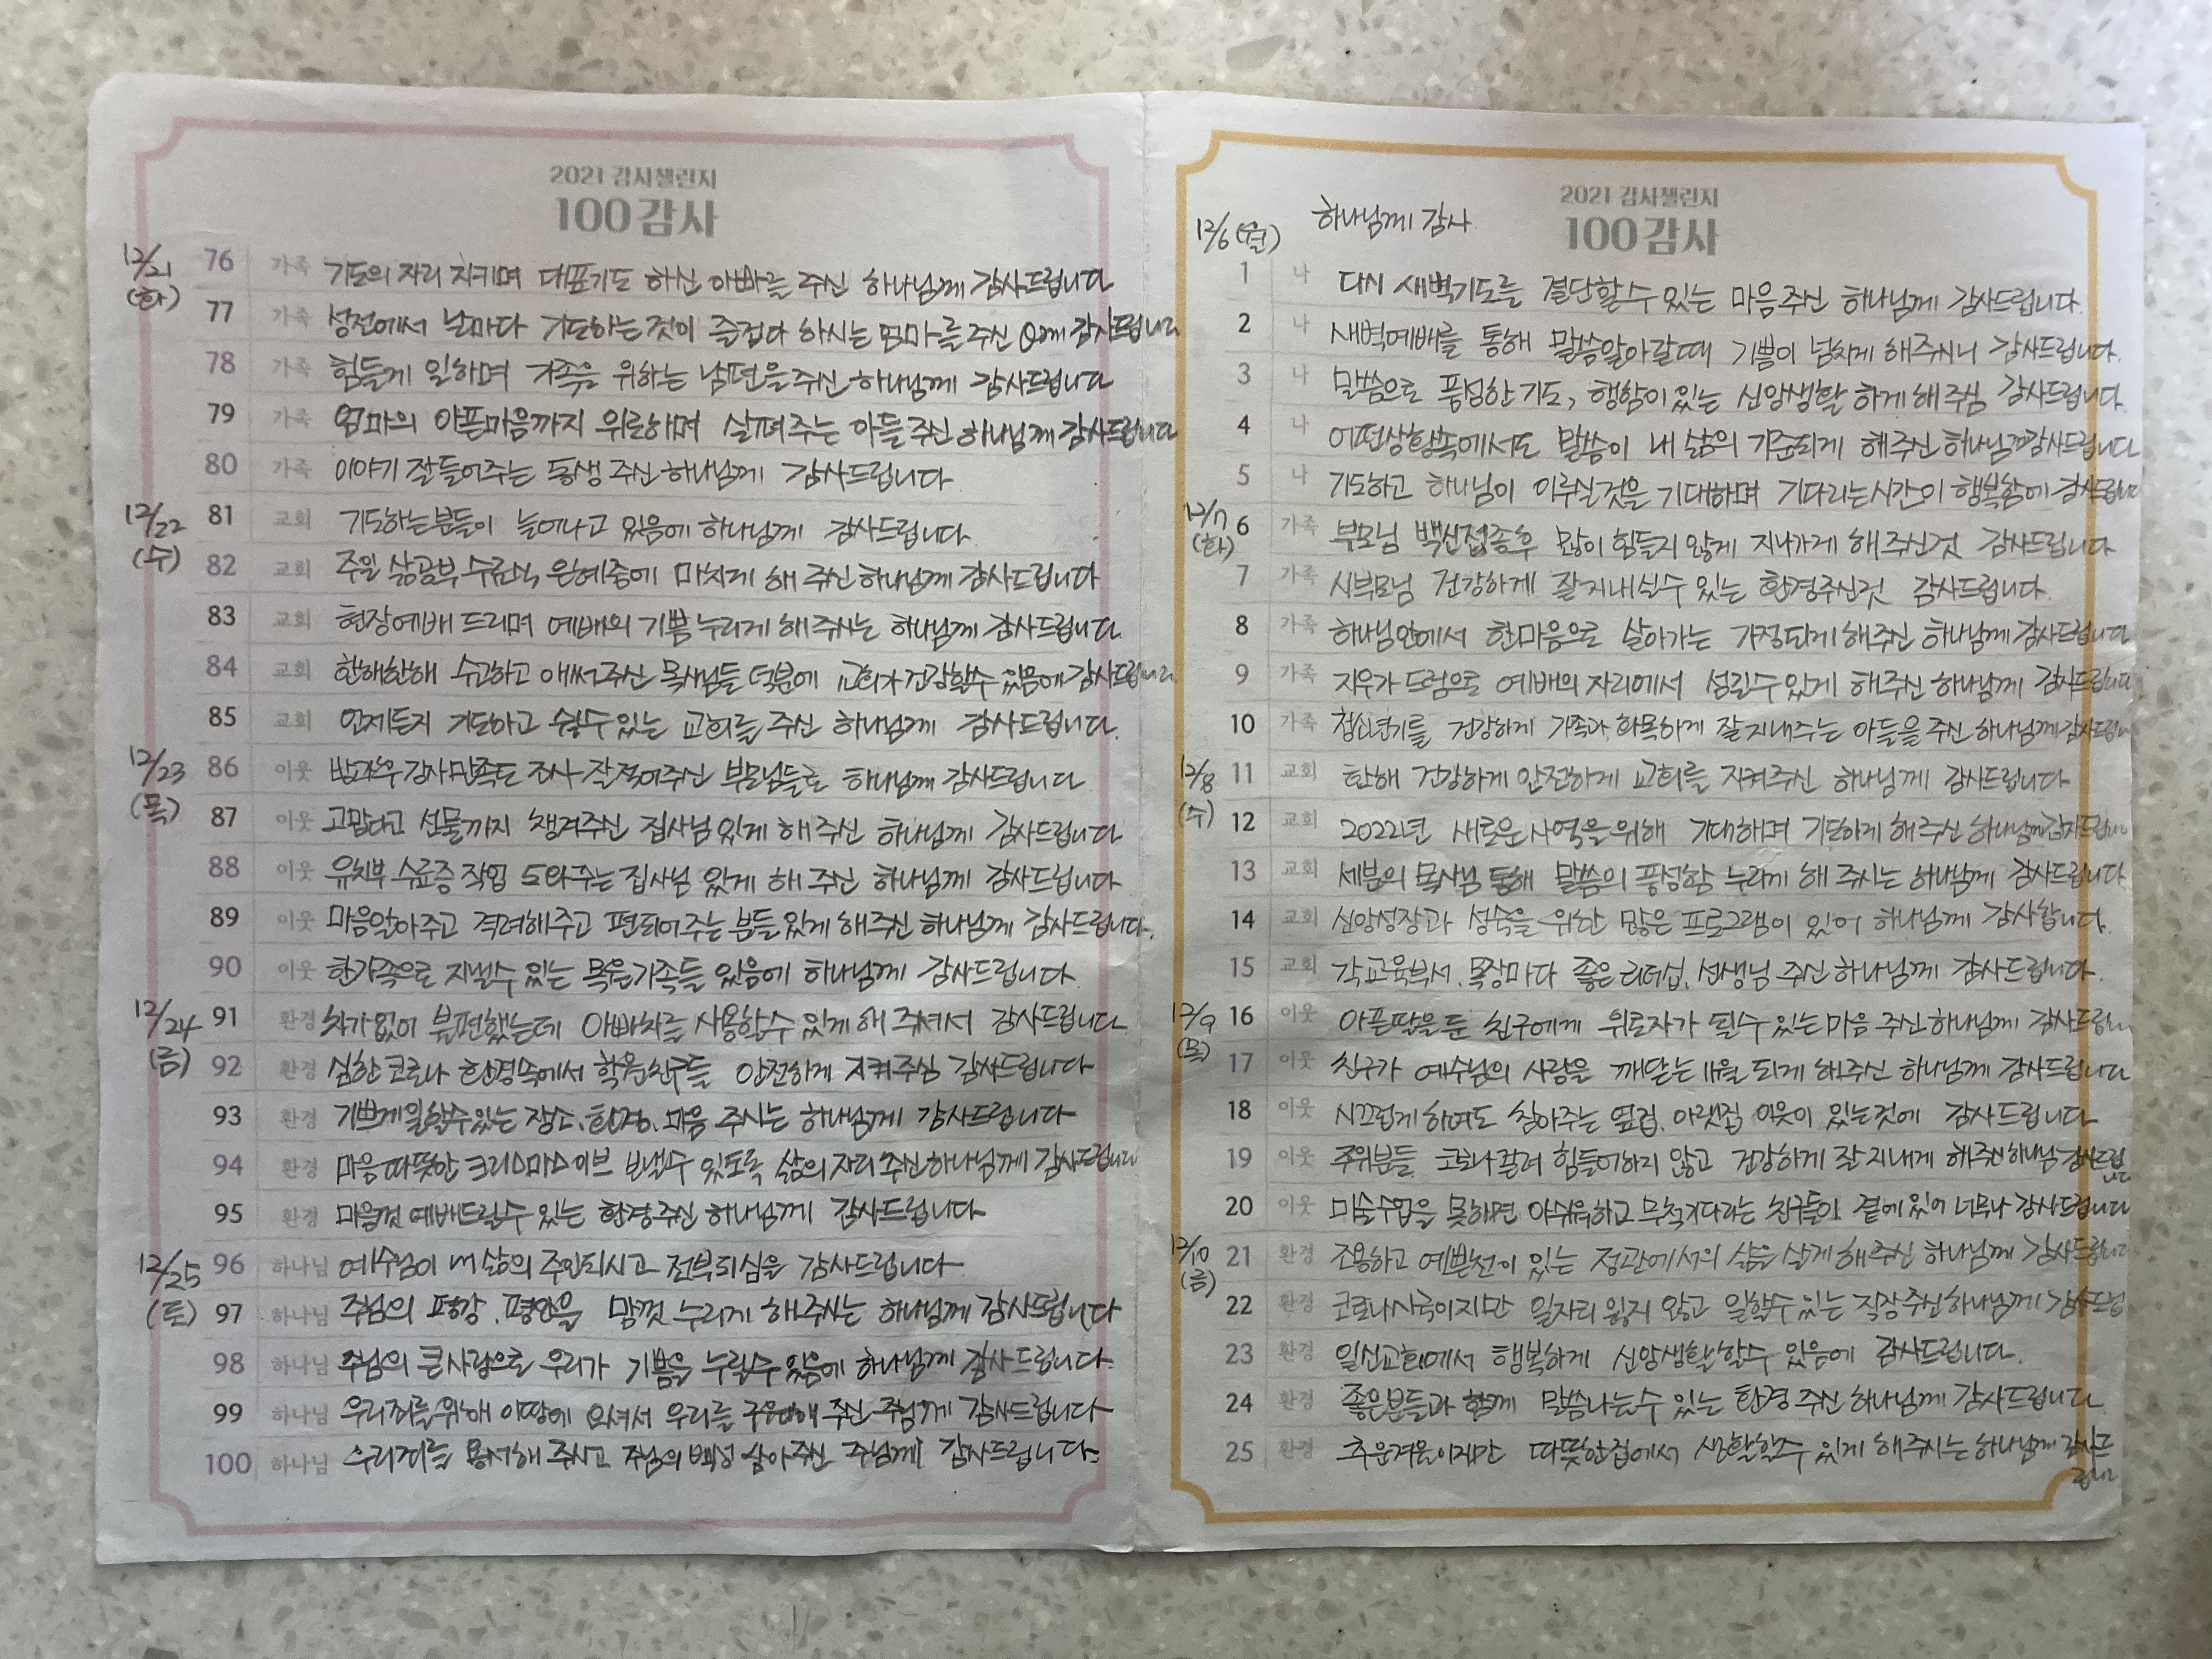 2021 감사챌린지
100감사
12/21 (화)
76 가족 기도의 자리 지키며 대표기도 하신 아빠를 주신 하나님께 감사드립니다
77 가족 성전에서 날마다 기도하는것이 즐겁다 하시는 엄마를 주신 께 감사드립니다
78 가족 힘들게 일하며 가족을 위하는 남편을 주신 하나님께 감사드립니다
79 가족 엄마의 아픈마음까지 위로하며 살펴주는 아들 주신 하나님께 감사드립니다
80 가족 이야기 잘들어주는 동생 주신 하나님께 감사드립니다
12/22 (수)
81 교회 기도하는분들이 늘어나고 있음에 하나님께 감사드립니다
82 교회 주일 삶공부 수료식 은혜중에 마치게 해 주신 하나님께 감사드립니다
83 교회 현장예배 드리며 예배의 기쁨 누리게 해주시는 하나님께 감사드립니다
84 교회 한해한해 수고하고 애써주신 목사님들 덕분에 교회가 건강할수 있음에 감사드립니다
85 교회 언제든지 기도하고 쉴수있는 교회를 주신 하나님께 감사드립니다.
12/23 (목)
86 이웃 방과후 감사만족도 조사 잘 적어주신 부모님들로 하나님께 감사드립니다
87 이웃 고맙다고 선물까지 챙겨주신 집사님 있게 해 주신 하나님께 감사드립니다
88 이웃 유치부 수료증 작업 도와주는 집사님 있게 해 주신 하나님께 감사드립니다
89 이웃 마음알아주고 격려해주고 편되어주는 분들 있게 해주신 하나님께 감사드립니다.
90 이웃 한가족으로 지낼수 있는 목원가족들 있음에 하나님께 감사드립니다.
12/24 (금)
91 환경 차가없어 불편했는데 아빠차를 사용할수 있게 해 주셔서 감사드립니다
92 환경 심한 코로나 환경속에서 학원친구들 안전하게 지켜주심 감사드립니다
93 환경 기쁘게일할수있는 장소, 환경, 마음 주시는 하나님께 감사드립니다
94 환경 마음 따뜻한 크리스마스 이브 보낼수 있도록 삶의 자리 주신 하나님께 감사드립니다
95 환경 마음껏 예배드릴수 있는 환경주신 하나님께 감사드립니다
12/25 (토)
96 하나님 예수님이 내 삶의 주인되시고 전부되심을 감사드립니다
97 하나님 주님의 평강, 평안을 맘껏 누리게 해주시는 하나님께 감사드립니다
98 하나님 주님의 큰사랑으로 우리가 기쁨을 누릴수 있음에 하나님께 감사드립니다.
99 하나님 우리죄를 위해 이땅에 오셔서 우리를 구원해 주신 주님께 감사드립니다
100 하나님 우리죄를 용서해 주시고 주님의 백성 삼아주신 주님께 감사드립니다.
2021 감사챌린지
100감사
12/6(월) 하나님께 감사
1 나 다시 새벽기도를 결단할수 있는 마음주신 하나님께 감사드립니다
2 나 새벽예배를 통해 말씀알아갈때 기쁨이 넘치게 해주시니 감사드립니다.
3 나 말씀으로 풍성한 기도, 행함이 있는 신앙생활 하게 해 주심 감사드립니다.
4 나 어떤상황속에서도 말씀이 내 삶의 기준되게 해주신 하나님께감사드립니다
5 나 기도하고 하나님이 이루실것을 기대하며 기다리는시간이 행복함에 감사드립니다
12/7 (화)
6 가족 부모님 백신접종후 많이 힘들지 않게 지나가게 해 주신것 감사드립니다
7 가족 시부모님 건강하게 잘지내실수 있는 환경주신것 감사드립니다.
8 가족 하나님안에서 한마음으로 살아가는 가정되게 해주신 하나님께 감사드립니다
9 가족 지우가 드럼으로 예배의 자리에서 섬길수 있게 해주신 하나님께 감사드립니다
10 가족 청소년기를 건강하게 가족과 화목하게 잘지내주는 아들을 주신 하나님께감사드립니다
12/8 (수)
11 교회 한해 건강하게 안전하게 교회를 지켜주신 하나님께 감사드립니다
12 교회 2022년 새로운 사역을 위해 기대하며 기도하게 해주신 하나님께감사드립니다
13 교회 세분의 목사님 통해 말씀의 풍성함 누리게 해 주시는 하나님께 감사드립니다
14 교회 신앙성장과 성숙을 위한 많은 프로그램이 있어 하나님께 감사합니다.
15 교회 각교육부서, 목장마다 좋은 리더십, 선생님 주신 하나님께 감사드립니다.
12/9 (목)
16 이웃 아픈딸을 둔 친구에게 위로자가 될수 있는 마음 주신 하나님께 감사드립니다
17 이웃 친구가 예수님의 사랑을 깨닫는 11월 되게 해주신 하나님께 감사드립니다
18 이웃 시끄럽게 하여도 참아주는 옆집, 아랫집 이웃이 있는것에 감사드립니다
19 이웃 주위분들 코로나걸려 힘들어하지 않고 건강하게 잘 지내게 해주신 하나님 감사드립니다
20 이웃 미술수업을 못하면 아쉬워하고 무척기다리는 친구들이 곁에 있어 너무나 감사드립니다
12/10 (금)
21 환경 조용하고 예쁜천이 있는 정관에서의 삶을 살게 해주신 하나님께 감사드립니다
22 환경 코로나시국이지만 일자리 잃지 않고 일할수 있는 직장주신하나님께 감사드립
23 환경 일신교회에서 행복하게 신앙생활할수 있음에 감사드립니다.
24 환경 좋은분들과 함께 말씀나눌수 있는 환경 주신 하나님께 감사드립니다
25 환경 추운겨울이지만 따뜻한집에서 생활할수 있게 해주시는 하나님께 감사드립니다